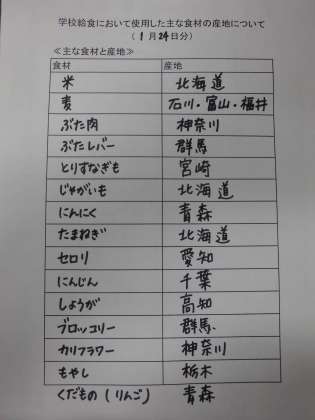 学校給食において使用した主な食材の産地について
（1月24日分）
≪主な食材と産地≫
食材 産地
米 北海道
麦 石川・富山・福井
ぶた肉 神奈川
ぶたレバー 群馬
とりすなぎも 宮崎
じゃがいも 北海道
にんにく 青森
たまねぎ 北海道
セロリ 愛知
にんじん 千葉
しょうが 高知
ブロッコリー 群馬
カリフラワー 神奈川
もやし 栃木
くだもの（りんご） 青森